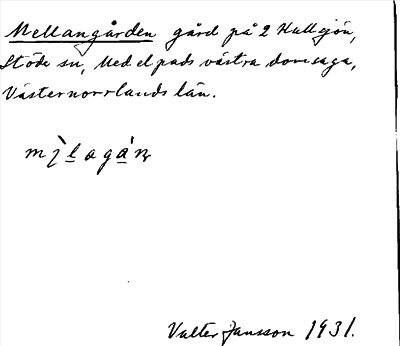 Mellangården gård på 2 Hullsjön,
Stöde sn, Medelpads västra domsaga,
Västernorrlands län.
Valter Jansson 1931.